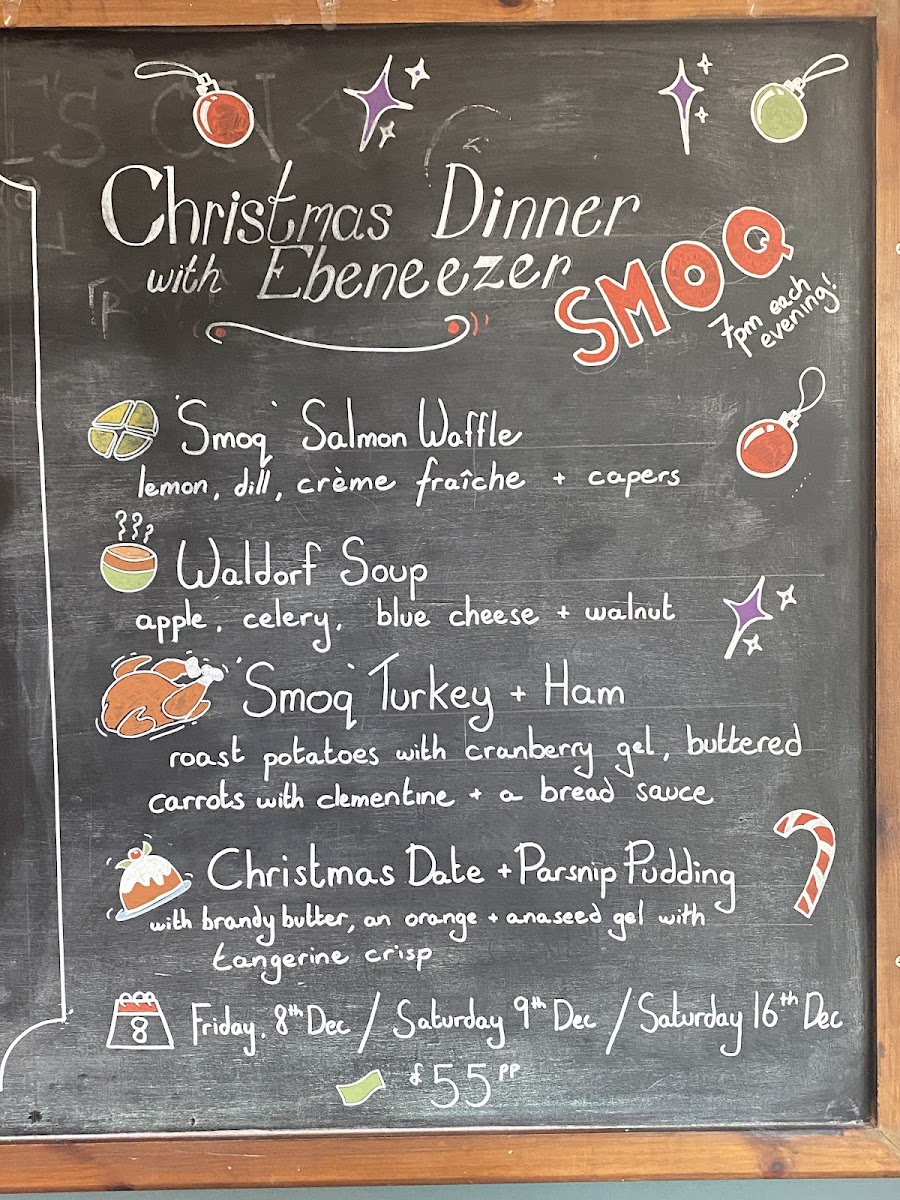 Christmas Dinner
with Ebeneezer
SMOQ
7pm each
evening!
'Smoq' Salmon Waffle
lemon, dill, crème fraîche + capers
Waldorf Soup
apple, celery, blue cheese + walnut
'Smoq' Turkey + Ham
roast potatoes with cranberry gel, buttered
carrots with clementine + a bread sauce
Christmas Date + Parsnip Pudding
with brandy butter, an orange + anaseed gel with
tangerine crisp
8
Friday. 8th Dec / Saturday 9th Dec / Saturday 16th Dec
£55pp